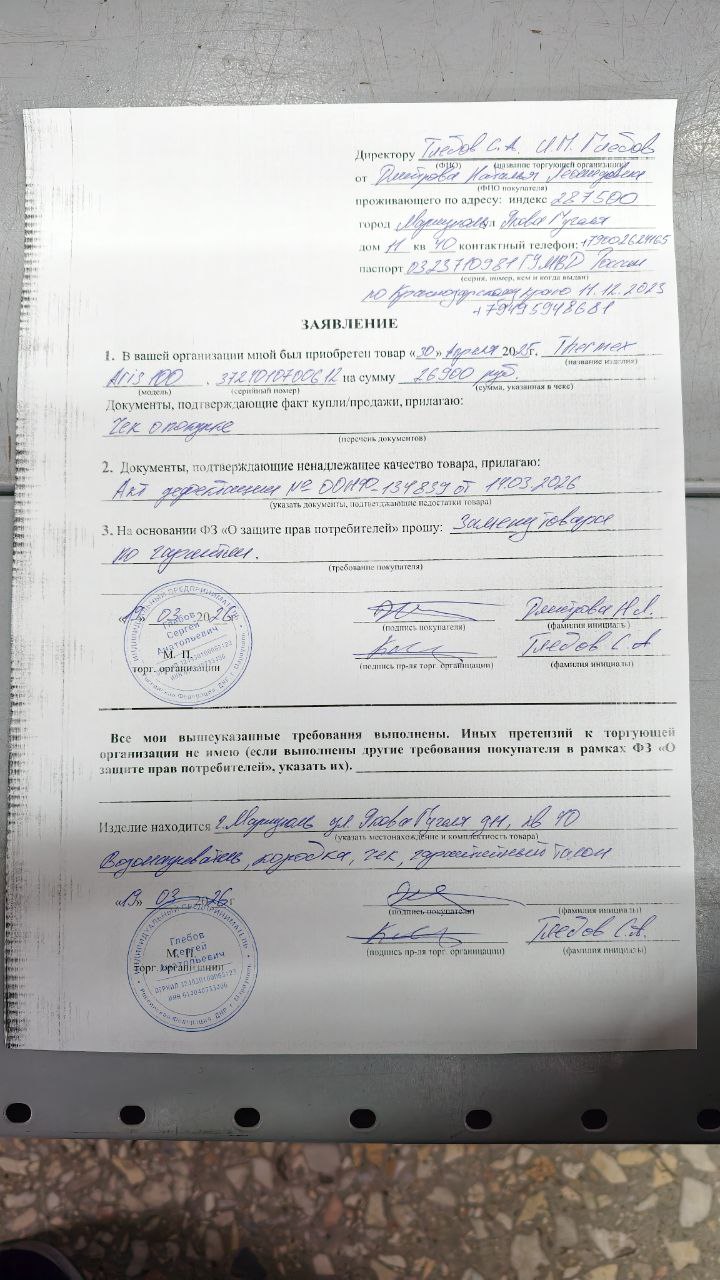 Директору Глебов С.А. И.П. Глебов
(ФИО) (название торгующей организации)
от Дмитрова Наталья Леонидовна
(ФИО покупателя)
проживающего по адресу: индекс 287500
город Мариуполь ул Якова Гугеля
дом 11 кв 40 контактный телефон:
паспорт 0323710981 ГУ МВД России
(серия, номер, кем и когда выдан)
по Краснодарскому краю 11.12.2023
+79495948681
ЗАЯВЛЕНИЕ
1. В вашей организации мной был приобретен товар «30» Апреля 2025г. Thermex
(название изделия)
Aris 100 . на сумму 26900 руб
(модель) (серийный номер) (сумма, указанная в чеке)
Документы, подтверждающие факт купли/продажи, прилагаю:
Чек о покупке
(перечень документов)
2. Документы, подтверждающие ненадлежащее качество товара, прилагаю:
Акт дефектации № 00НФ-134839 от 19.03.2026
(указать документы, подтверждающие недостатки товара)
3. На основании ФЗ «О защите прав потребителей» прошу: Замену товара
по гарантии.
(требование покупателя)
«19» 03 2026г Дмитрова Н.Л.
(подпись покупателя) (фамилия инициалы)
М. П. Глебов С.А
торг. организации (подпись пр-ля торг. организации) (фамилия инициалы)
ИНДИВИДУАЛЬНЫЙ ПРЕДПРИНИМАТЕЛЬ
Глебов
Сергей
Анатольевич
Все мои вышеуказанные требования выполнены. Иных претензий к торгующей
организации не имею (если выполнены другие требования покупателя в рамках ФЗ «О
защите прав потребителей», указать их).
Изделие находится г. Мариуполь ул. Якова Гугеля д 11, кв 40
(указать местонахождение и комплектность товара)
Водонагреватель, коробка, чек, гарантийный талон
«19» 03 2026г
(подпись покупателя) (фамилия инициалы)
М. П. Глебов С.А.
торг. организации (подпись пр-ля торг. организации) (фамилия инициалы)
ИНДИВИДУАЛЬНЫЙ ПРЕДПРИНИМАТЕЛЬ
Глебов
Сергей
Анатольевич